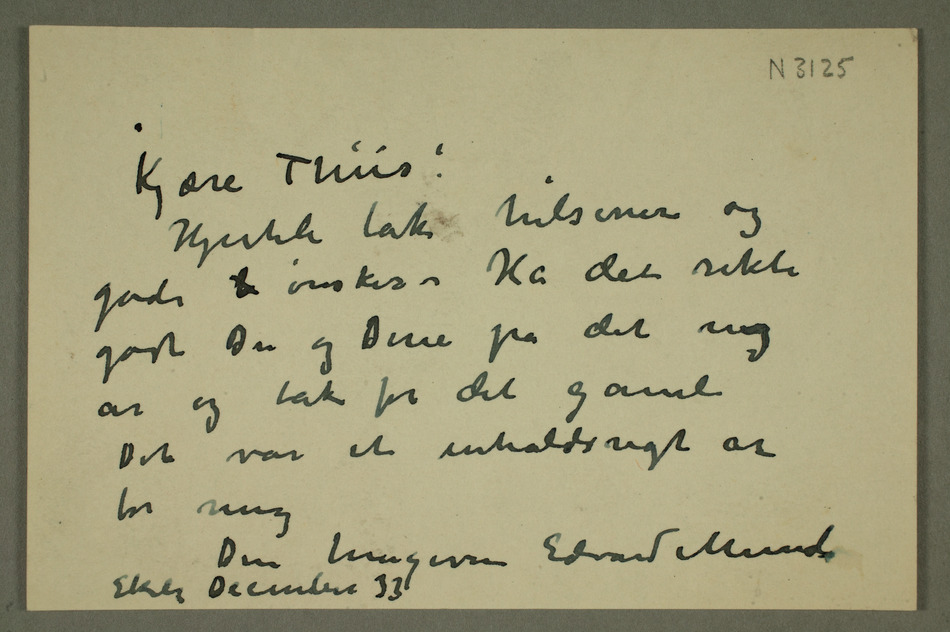 N 3125
Kjære Thiis!
Hjertelig tak hilsener og
gode ønsker – Ha det rikti
godt Du og Dine på det ny
år og tak for det gamle
Det var et inholdsrigt år
for mig
Din hengivne Edvard Munch
Ekely December 33